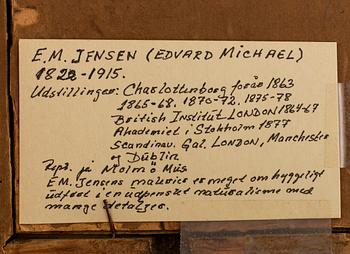 E.M. JENSEN (EDVARD MICHAEL)
1822-1915.
Udstillinger: Charlottenborg forår 1863
1865-68. 1870-72. 1875-78
British Institut LONDON 1864-67
Akademiet i Stokholm 1877
Scandinav. Gal. LONDON, Manchester
og Dublin
Repr. på Malmø Mus
E.M. Jensens malerier er meget omhyggeligt
udført i en udpenslet naturalisme med
mange detaljer.